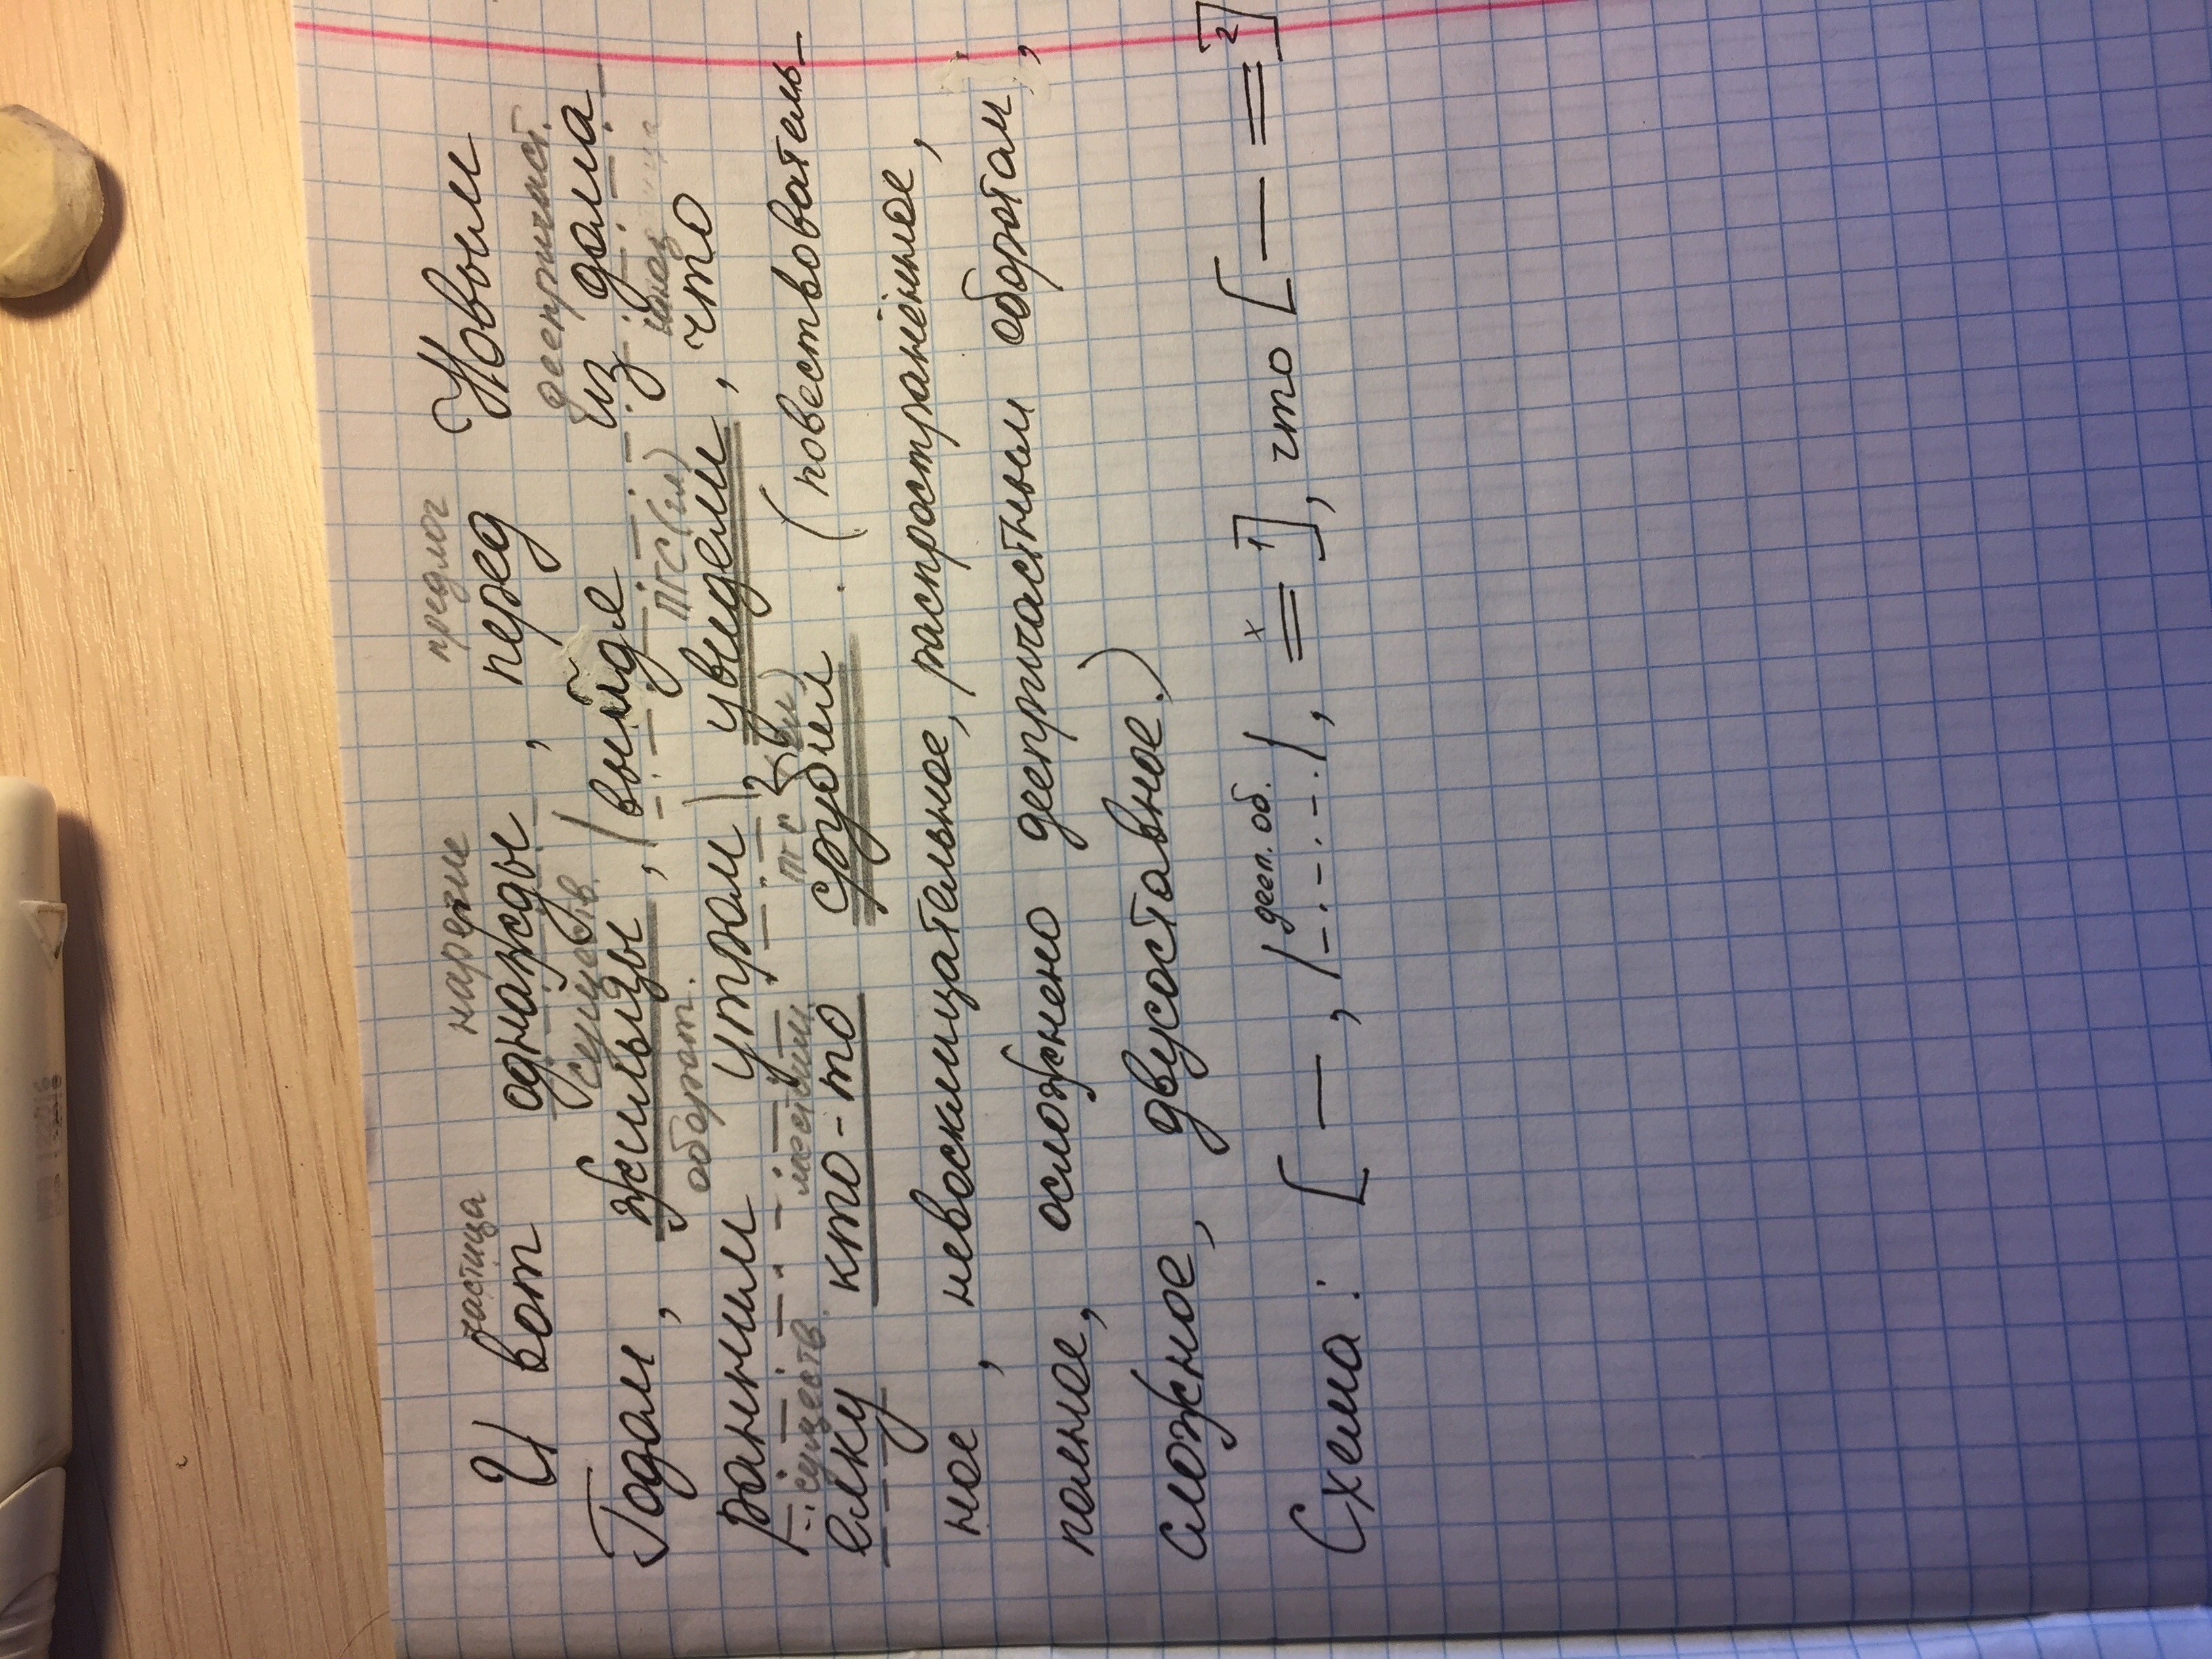 частица наречие предлог
И вот однажды, перед Новым
существ. дееприсаст.
Годом, жильцы, /выйде из дома
оборот. ПГС(ил)
ранним утром/, увидели, что
существ. местоим.
ёлку кто-то срубил. (повествователь-
ное, невосклицательное, распространённое,
полное, осложнено деепричастным оборотам,
сложное, двусоставное.)
дееп. об. х
Схема: [ — , /-.-.-.-./, = 1], что [ — = 2]